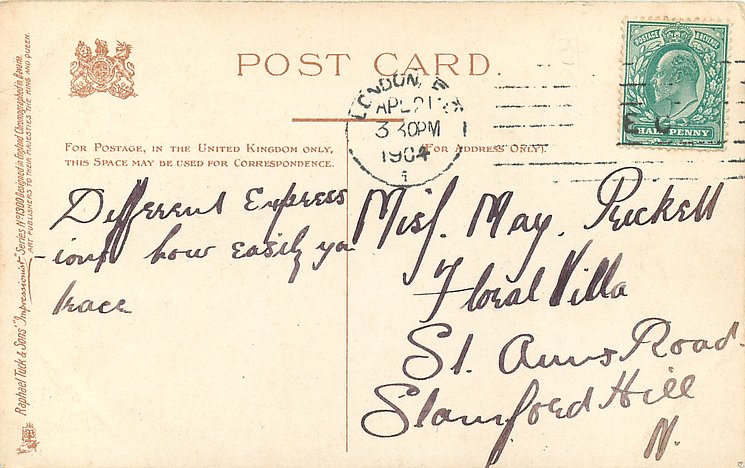 POST CARD.
LONDON, E
AP 21
3 30PM
1904
1
POSTAGE & REVENUE
HALF PENNY
FOR POSTAGE, IN THE UNITED KINGDOM ONLY,
THIS SPACE MAY BE USED FOR CORRESPONDENCE.
FOR ADDRESS ONLY.
Different Express
-ions how easily ya
trace
Miss. May. Puckett
Floral Villa
St. Anns Road.
Stamford Hill
N.
Raphael Tuck & Sons' "Impressionist" Series No 1300 Designed in England Chromographed in Bavaria.
ART PUBLISHERS TO THEIR MAJESTIES THE KING AND QUEEN.